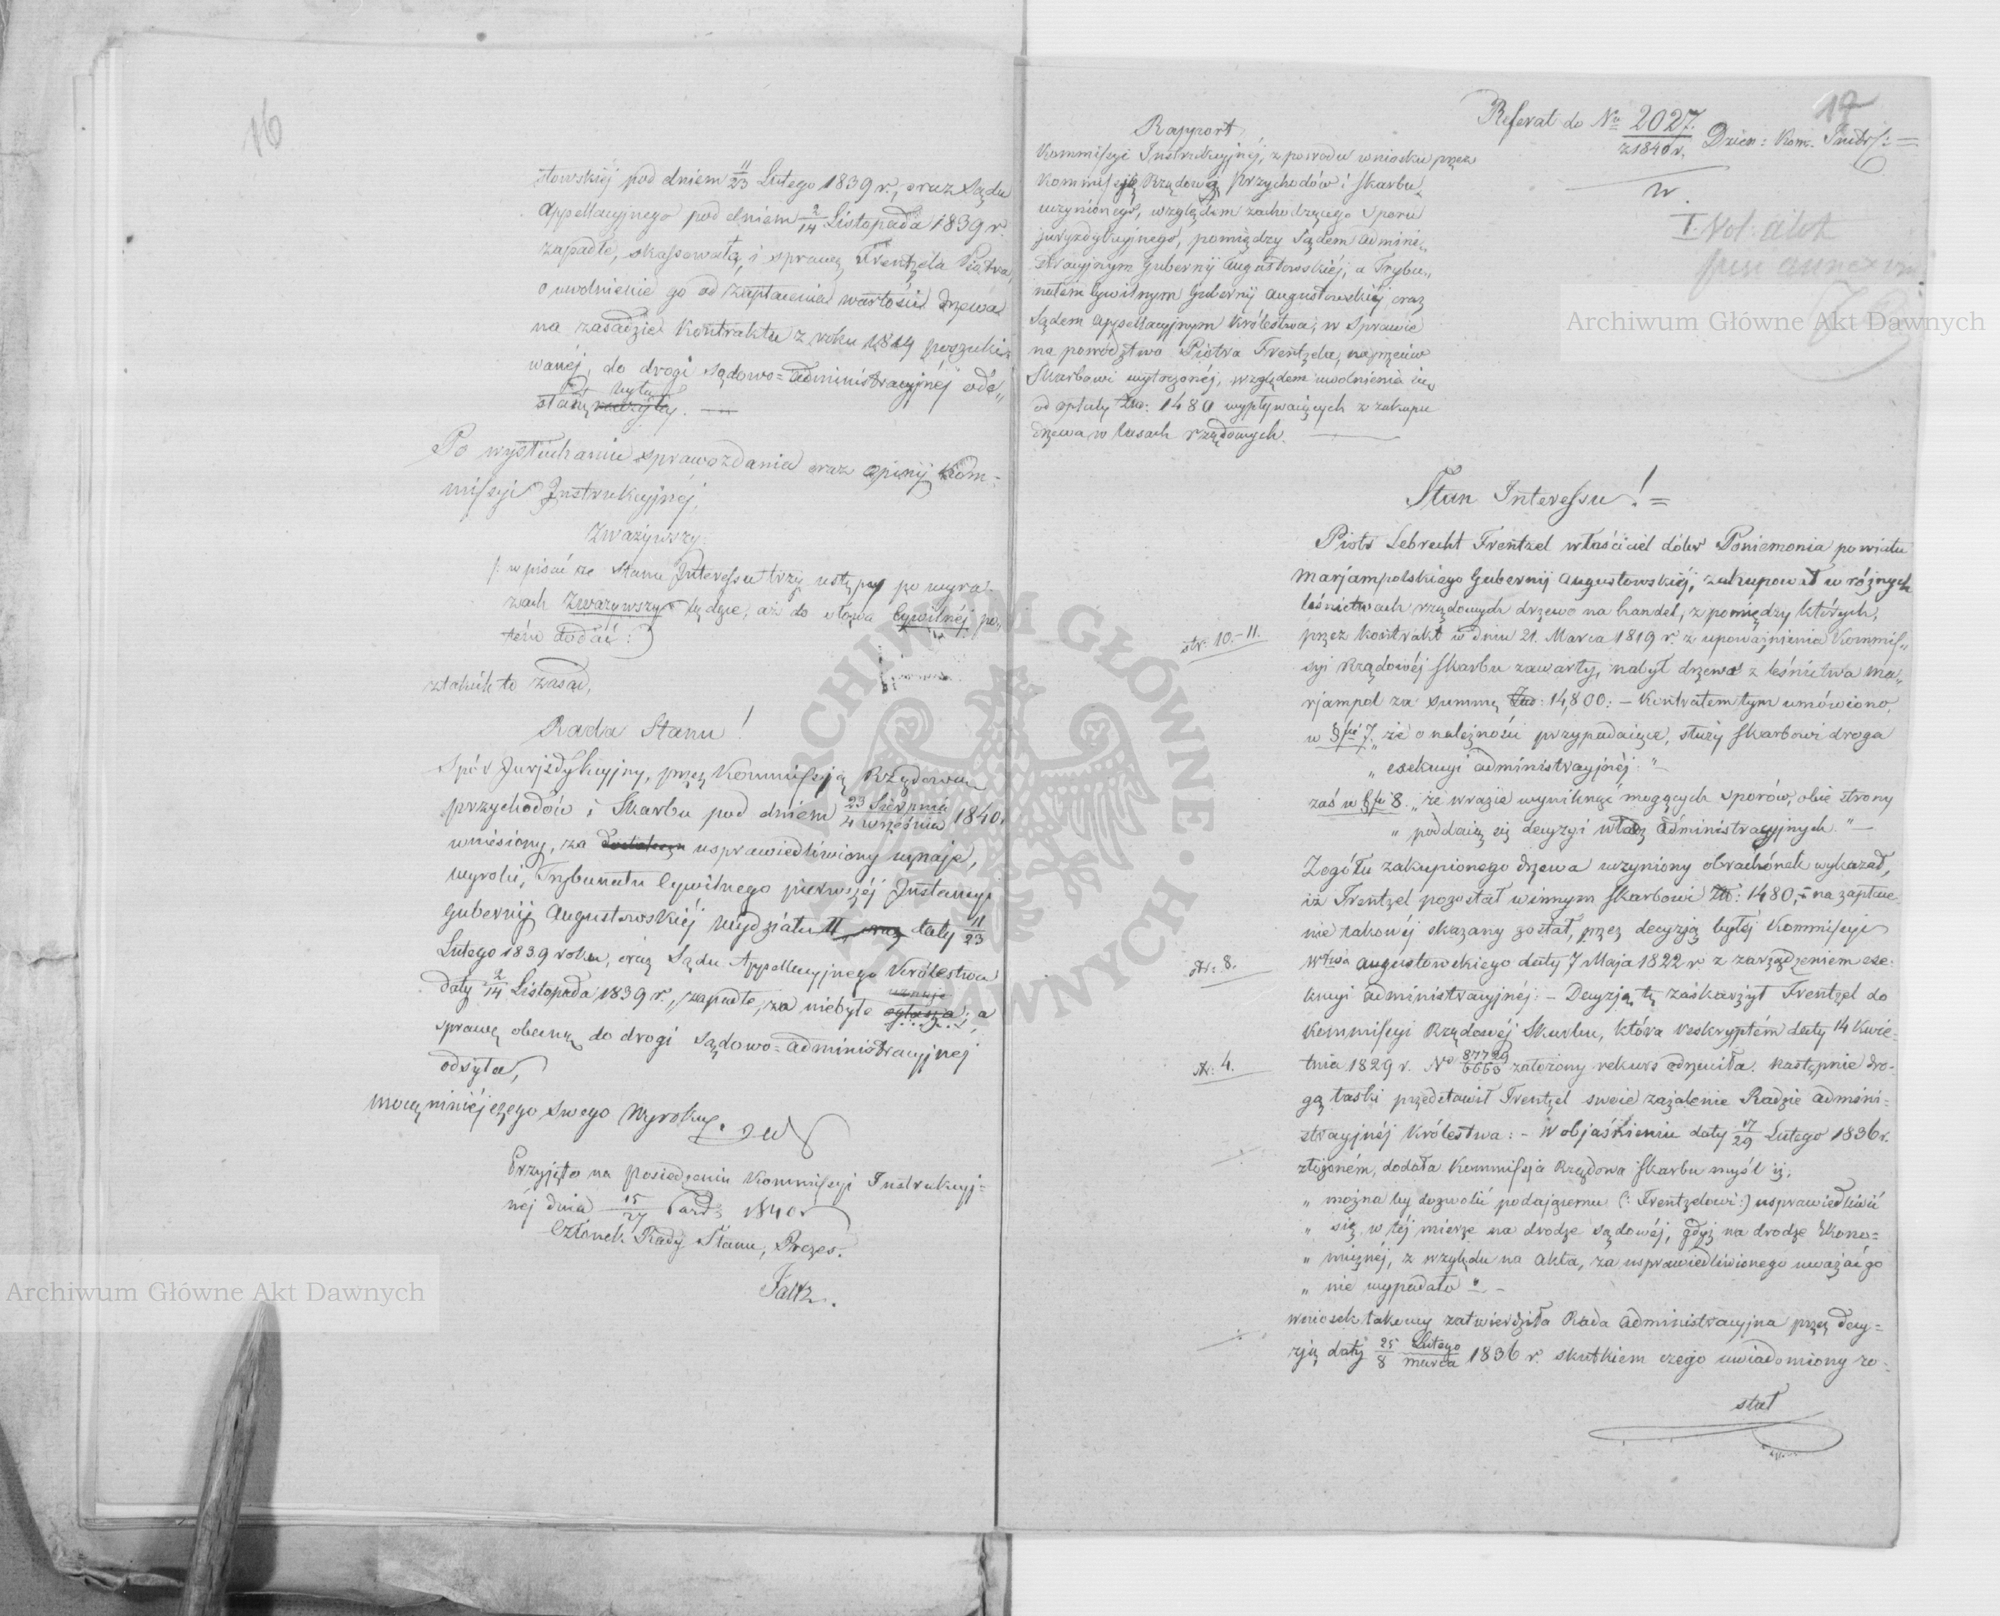 16
stowskiéj pod dniem 11/23 Lutego 1839 r., oraz Sądu
Appellacyjnego pod dniem 2/14 Listopada 1839 r.
zapadłe, skassowała, i sprawę Frentzla Piotra,
o uwolnienie go od zapłacenia wartości drzewa
na zasadzie kontraktu z roku 1819 poszuki-
wanéj, do drogi Sądowo=Administracyjnéj ode„
słać
Po wysłuchaniu sprawozdania oraz opinij Kom=
missyi Instrukcyjnéj,
Zważywszy:
/: wpisać ze Stanu Interessu trzy ustępy po wyra-
zach Zważywszy będące, aż do słowa cywilnéj po„
tém dodać:
z takich to zasad,
Rada Stanu!
Spór Juryzdykcyjny, przez Kommissyą Rządową
przychodów i Skarbu pod dniem 23 Sierpnia/4 Września 1840,
wniesiony, za usprawiedliwiony uznaje,
wyroki, Trybunału Cywilnego pierwszéj Instancyi
Gubernij Augustowskiéj Wydziału II, oraz daty 11/23
Lutego 1839 roku, oraz Sądu Appellacyjnego Królestwa
daty 2/14 Listopada 1839 r., zapadłe, za niebyłe uznaje ogłasza; a
sprawę obecną do drogi Sądowo=Administracyjnej
odsyła,
mocą niniejszego Swego Wyroku.
Przyjęto na Posiedzeniu Kommissyi Instrukcyj=
néj dnia 15/27 Paźdz 1840 r
Członek Rady Stanu, Prezes.
Faltz.
17
Referat do Nru 2027/z 1840 r. Dzien: Kom. Instr:
Rapport
Kommissyi Instrukcyjnéj, z powodu wniosku przez
Kommissyą Rządową Przychodów i Skarbu,
uczynionego, względem zachodzącego sporu
juryzdykcyjnego, pomiędzy Sądem Admini„
stracyjnym Gubernij Augustowskiéj, a Trybu„
nałem Cywilnym Gubernij Augustowskiéj oraz
Sądem Appellacyjnym Królestwa, w Sprawie
na powództwo Piotra Frentzla, naprzeciw
Skarbowi wytoczonéj, względem uwolnienia
od opłaty Złp: 1480 wypływających z zakupu
drzewa w lasach rządowych.
I. Vol: akt
Stan Interessu!
Piotr Lebrecht Frentzel właściciel dóbr Poniemonia powiatu
Marjampolskiego Gubernij Augustowskiéj, zakupował w różnych
leśnictwach rządowych drzewo na handel, z pomiędzy których,
str: 10.-11.
przez kontrakt w dniu 21. Marca 1819 r. z upoważnienia Kommis„
syi Rządowéj Skarbu zawarty, nabył drzewo z leśnictwa Ma„
rjampol za summę Złp: 14,800: – Kontraktem tym umówiono,
w § fie 7. „że o należności przypadające, służy Skarbowi droga
„ exekucyi administracyjnéj: "
zaś w § fie 8. „że wrazie wyniknąć mogących sporów, obie strony
„ poddają się decyzyi władz Administracyjnych." –
Zogółu zakupionego drzewa uczyniony obrachunek wykazał,
iż Frentzel pozostał winnym Skarbowi Złp: 1480,– na zapłace-
nie takowéj skazany został, przez decyzją byłéj Kommissyi
str: 8.
Wdztwa Augustowskiego daty 7 Maja 1822 r z zarządzeniem exe-
kucyi administracyjnéj: – Decyzją tę zaskarżył Frentzel do
Kommissyi Rządowéj Skarbu, która reskryptém daty 14 Kwie-
str: 4.
tnia 1829 r. No 87729/6660 założony rekurs odrzuciła. następnie dro-
gą łaski przedstawił Frentzel swoie zażalenie Radzie Admini=
stracyjnéj Królestwa: – W objaśnieniu daty 17/29 Lutego 1836 r.
złożoném, dodała Kommissja Rządowa Skarbu myśl iż,
„ można by dozwolić podającemu (: Frentzlowi:) usprawiedliwić
„ się w téj mierze na drodze sądowéj, gdyż na drodze Ekono=
„ micznéj, z względu na akta, za usprawiedliwionego uważać go
„ nie wypadało "–
wniosek takowy zatwierdziła Rada Administracyjna przez decy=
zją daty 25 Lutego/8 Marca 1836 r. skutkiem czego uwiadomiony zo-
stał
Archiwum Główne Akt Dawnych
Archiwum Główne Akt Dawnych
ARCHIWUM GŁÓWNE AKT DAWNYCH